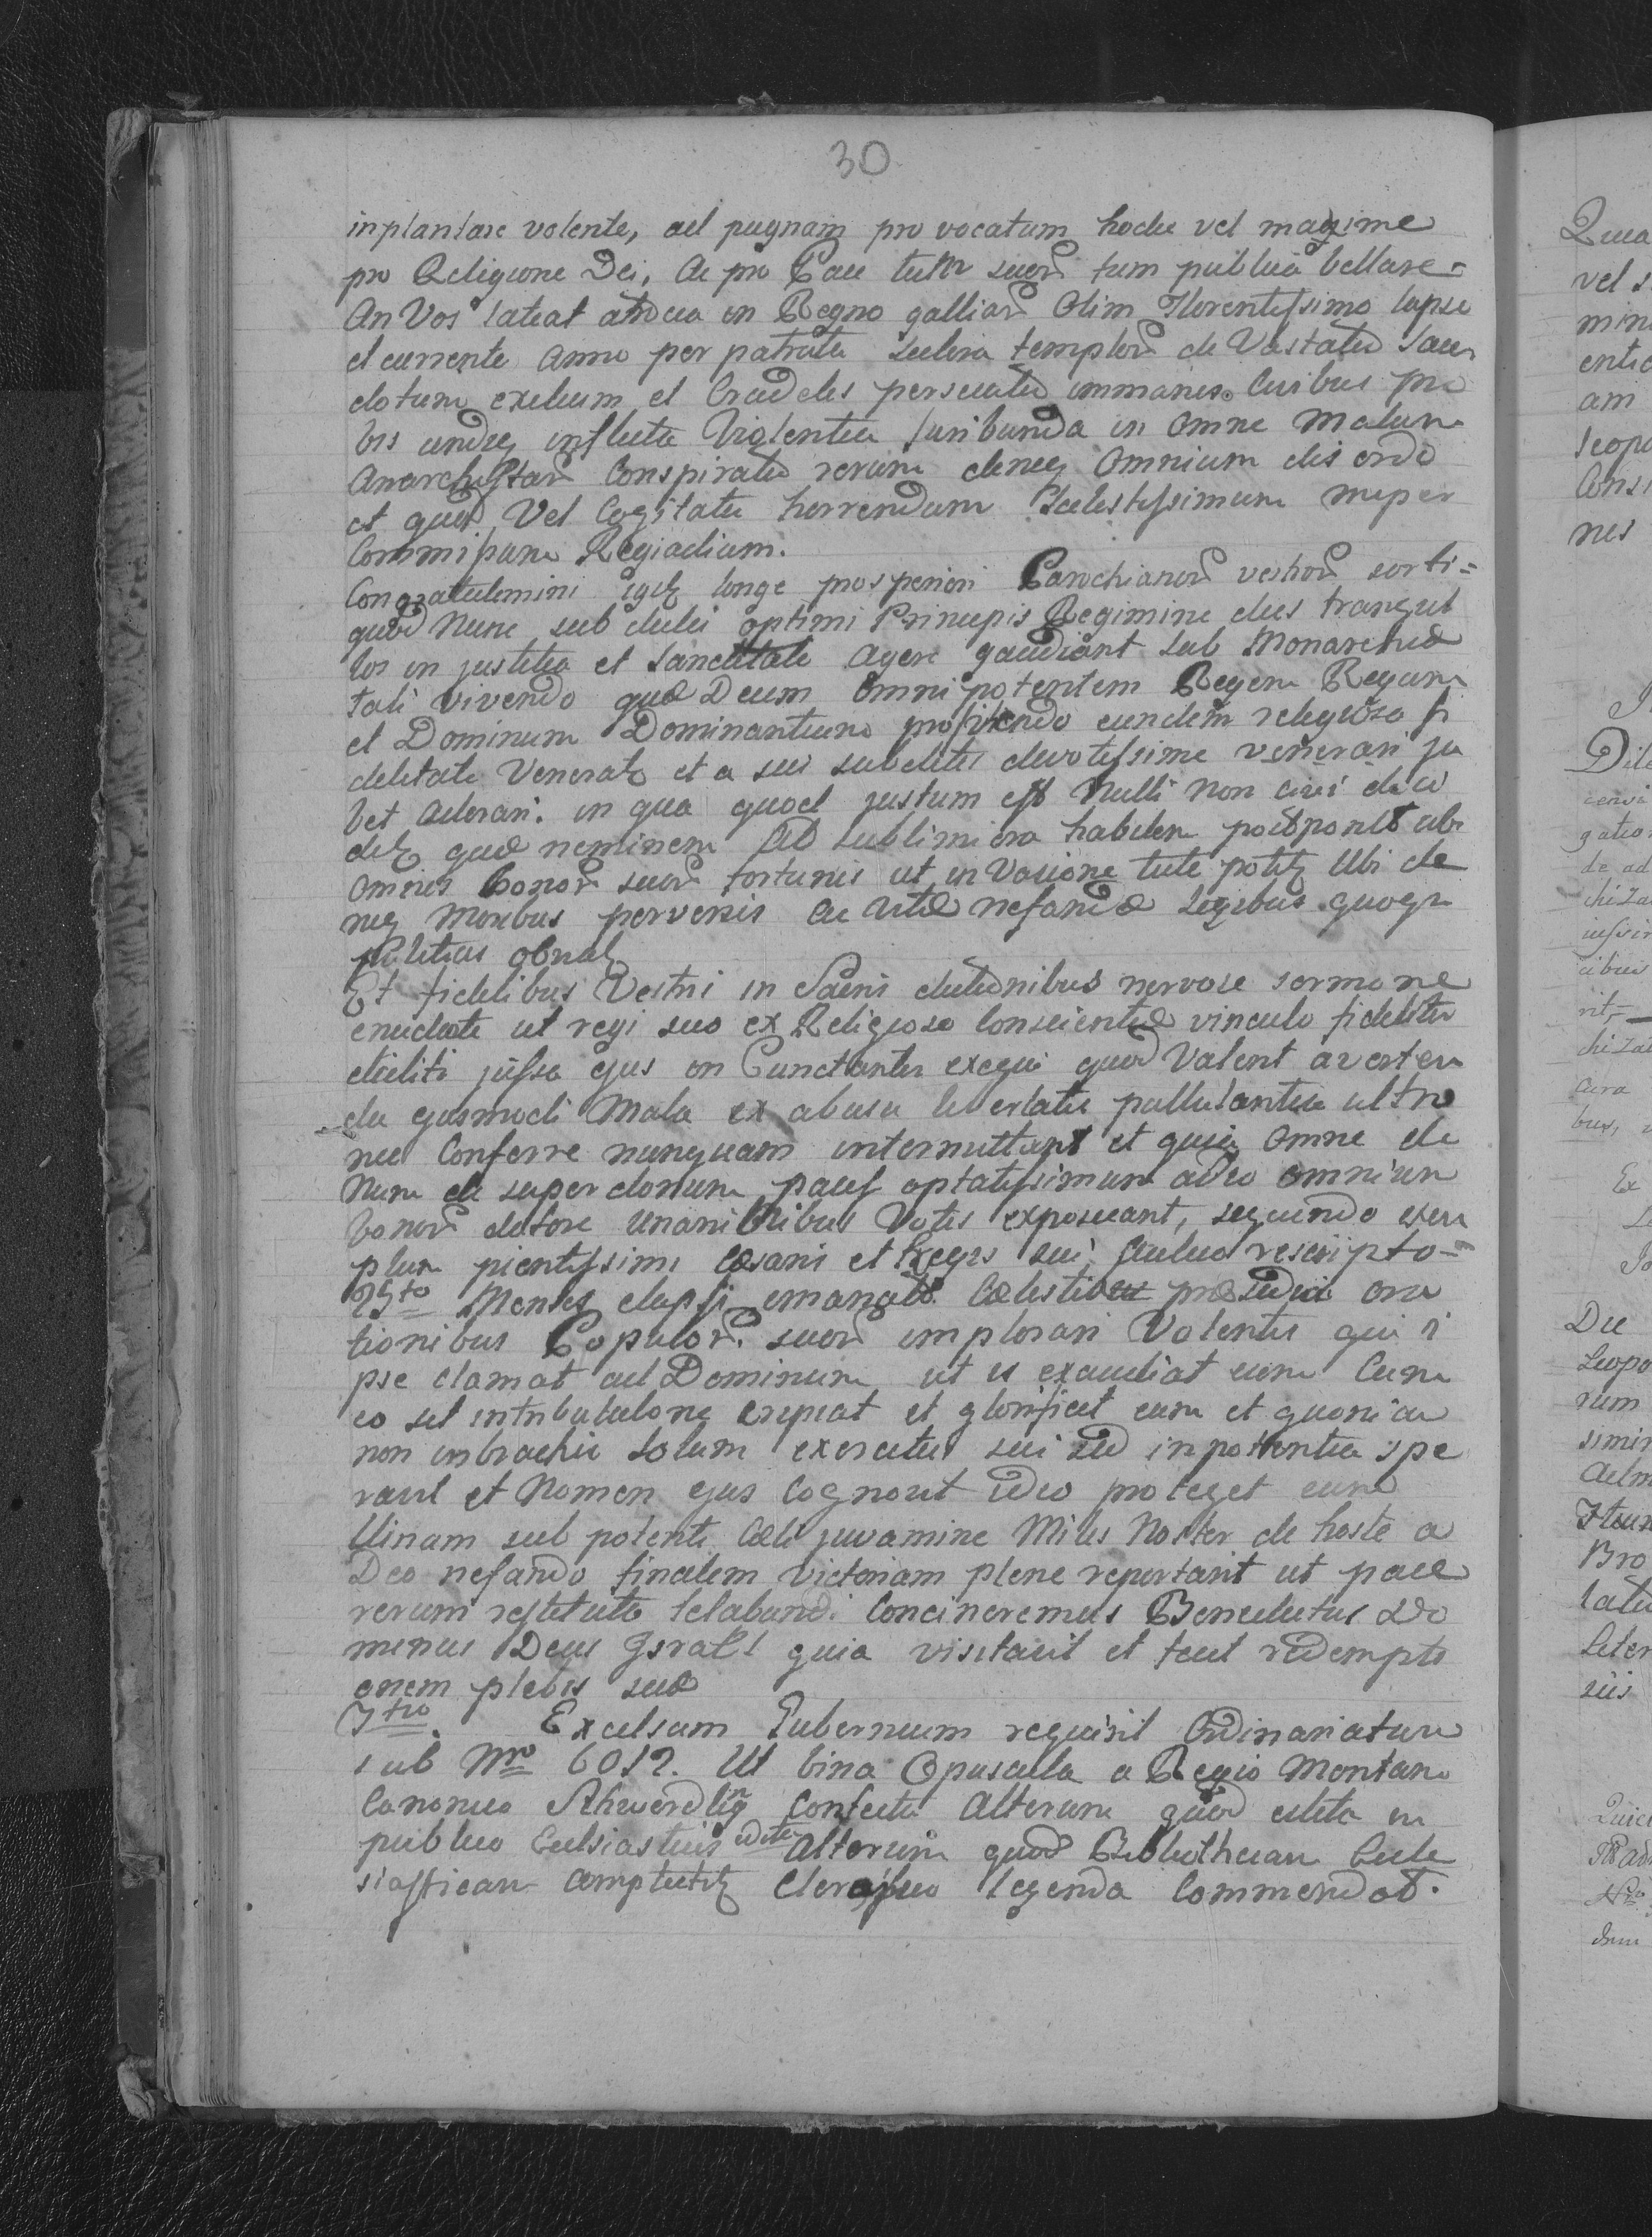 30
inplantare volente, ad pugnam pro vocatum hodie vel maxime
pro Religione Dei, ac pro Pace tum suor tum publica bellare
An Vos lateat atrocia in Regno galliar Olim Florentissimo lapso
et currente Anno per patrata scelera templor de Vastatio Sacer
dotum exilium et Crudeles persecutio immanis Civibus pro
bis undiq inflicta Violentia furibunda in Omne Malum
Anarchistar Conspiratio rerum deniq Omnium dis ordo
et quod Vel Cogitatu horrendum Scelestissimum nuper
Commissum Regiadium.
Congratulemini igit longe prosperiori Parochianor vestror sorti=
quod Nunc sub dulci optimi Principis Regimine dies tranquil
los in justitia et Sanctitate agere gaudiant sub Monarchia
tali vivendo quæ Deum Omnipotentem Regem Regum
et Dominum Dominantium profitendo eundem religiosa fi
delitate Venerat et a suis subditis devotissime venerari ju
bet adorari. in qua quod justum est Nulli non civi dici
dit quæ neminem Ad sublimiora habilem postponit ubi
omnes bonor suor fortunis ut in Vasione tute potit Ubi de
niq Moribus perversis ac vitæ nefandæ Legibus quoque
politicis obviat
Et fidelibus Vestri in Sacris dictionibus nervose sermone
enucleate ut regi suo ex Religioso Conscientiæ vinculo fideliter
dicliti jussa ejus in Cunctanter exequi quod Valent averten
da ejusmodi Mala ex abusu libertatis pullulantia ultro
nee Conferre nunquam intermittant et quia Omne do
num de super donum pacis optatissimum adeo omnium
bonor datore Unanimibus Votis exposcant, sequendo exem
plum pientissimi Cæsaris et Regis sui, Cujus rescripto=
25to Mensis elapsi emanato Cælestia præsidia ora
tionibus Populor suor implorari Volentis qui i
pse clamat ad Dominum ut is exaudiat eum Cum
eo sit in tribulatione eripiat et glorificet eum et quoniam
non in brachii solum exercitus sui sed in potentia spe
ravit et Nomen ejus Cognovit ideo proteget eum
Utinam sub potenti Cæli juvamine Miles Noster de hoste a
Deo nefando finalem victoriam plene reportarit ut pace
rerum restituta letabundi Concineremus Benedictus Do
minus Deus Israel quia visitavit et fecit redempti
onem plebis suæ
3tio Excelsum Gubernium requisit Ordinariatum
sub Nro 6012. Ut bina Opuscula a Regio Montano
Canonico Schwerdling Confecta Alterum quod edita in
publico Ecclsiasticis edita Alterum quod Bibliothecam Eccle
siasticam Complectit Clero suo legenda Commendat.
Qua
vel s
min
entia
am
leopo
Consi
nes
gatio
de ad
chiza
cibus
rit,
chiza
Cura
bus,
Ex
Die
Leopo
rum
simin
Adm
Bro
latio
Liter
suis